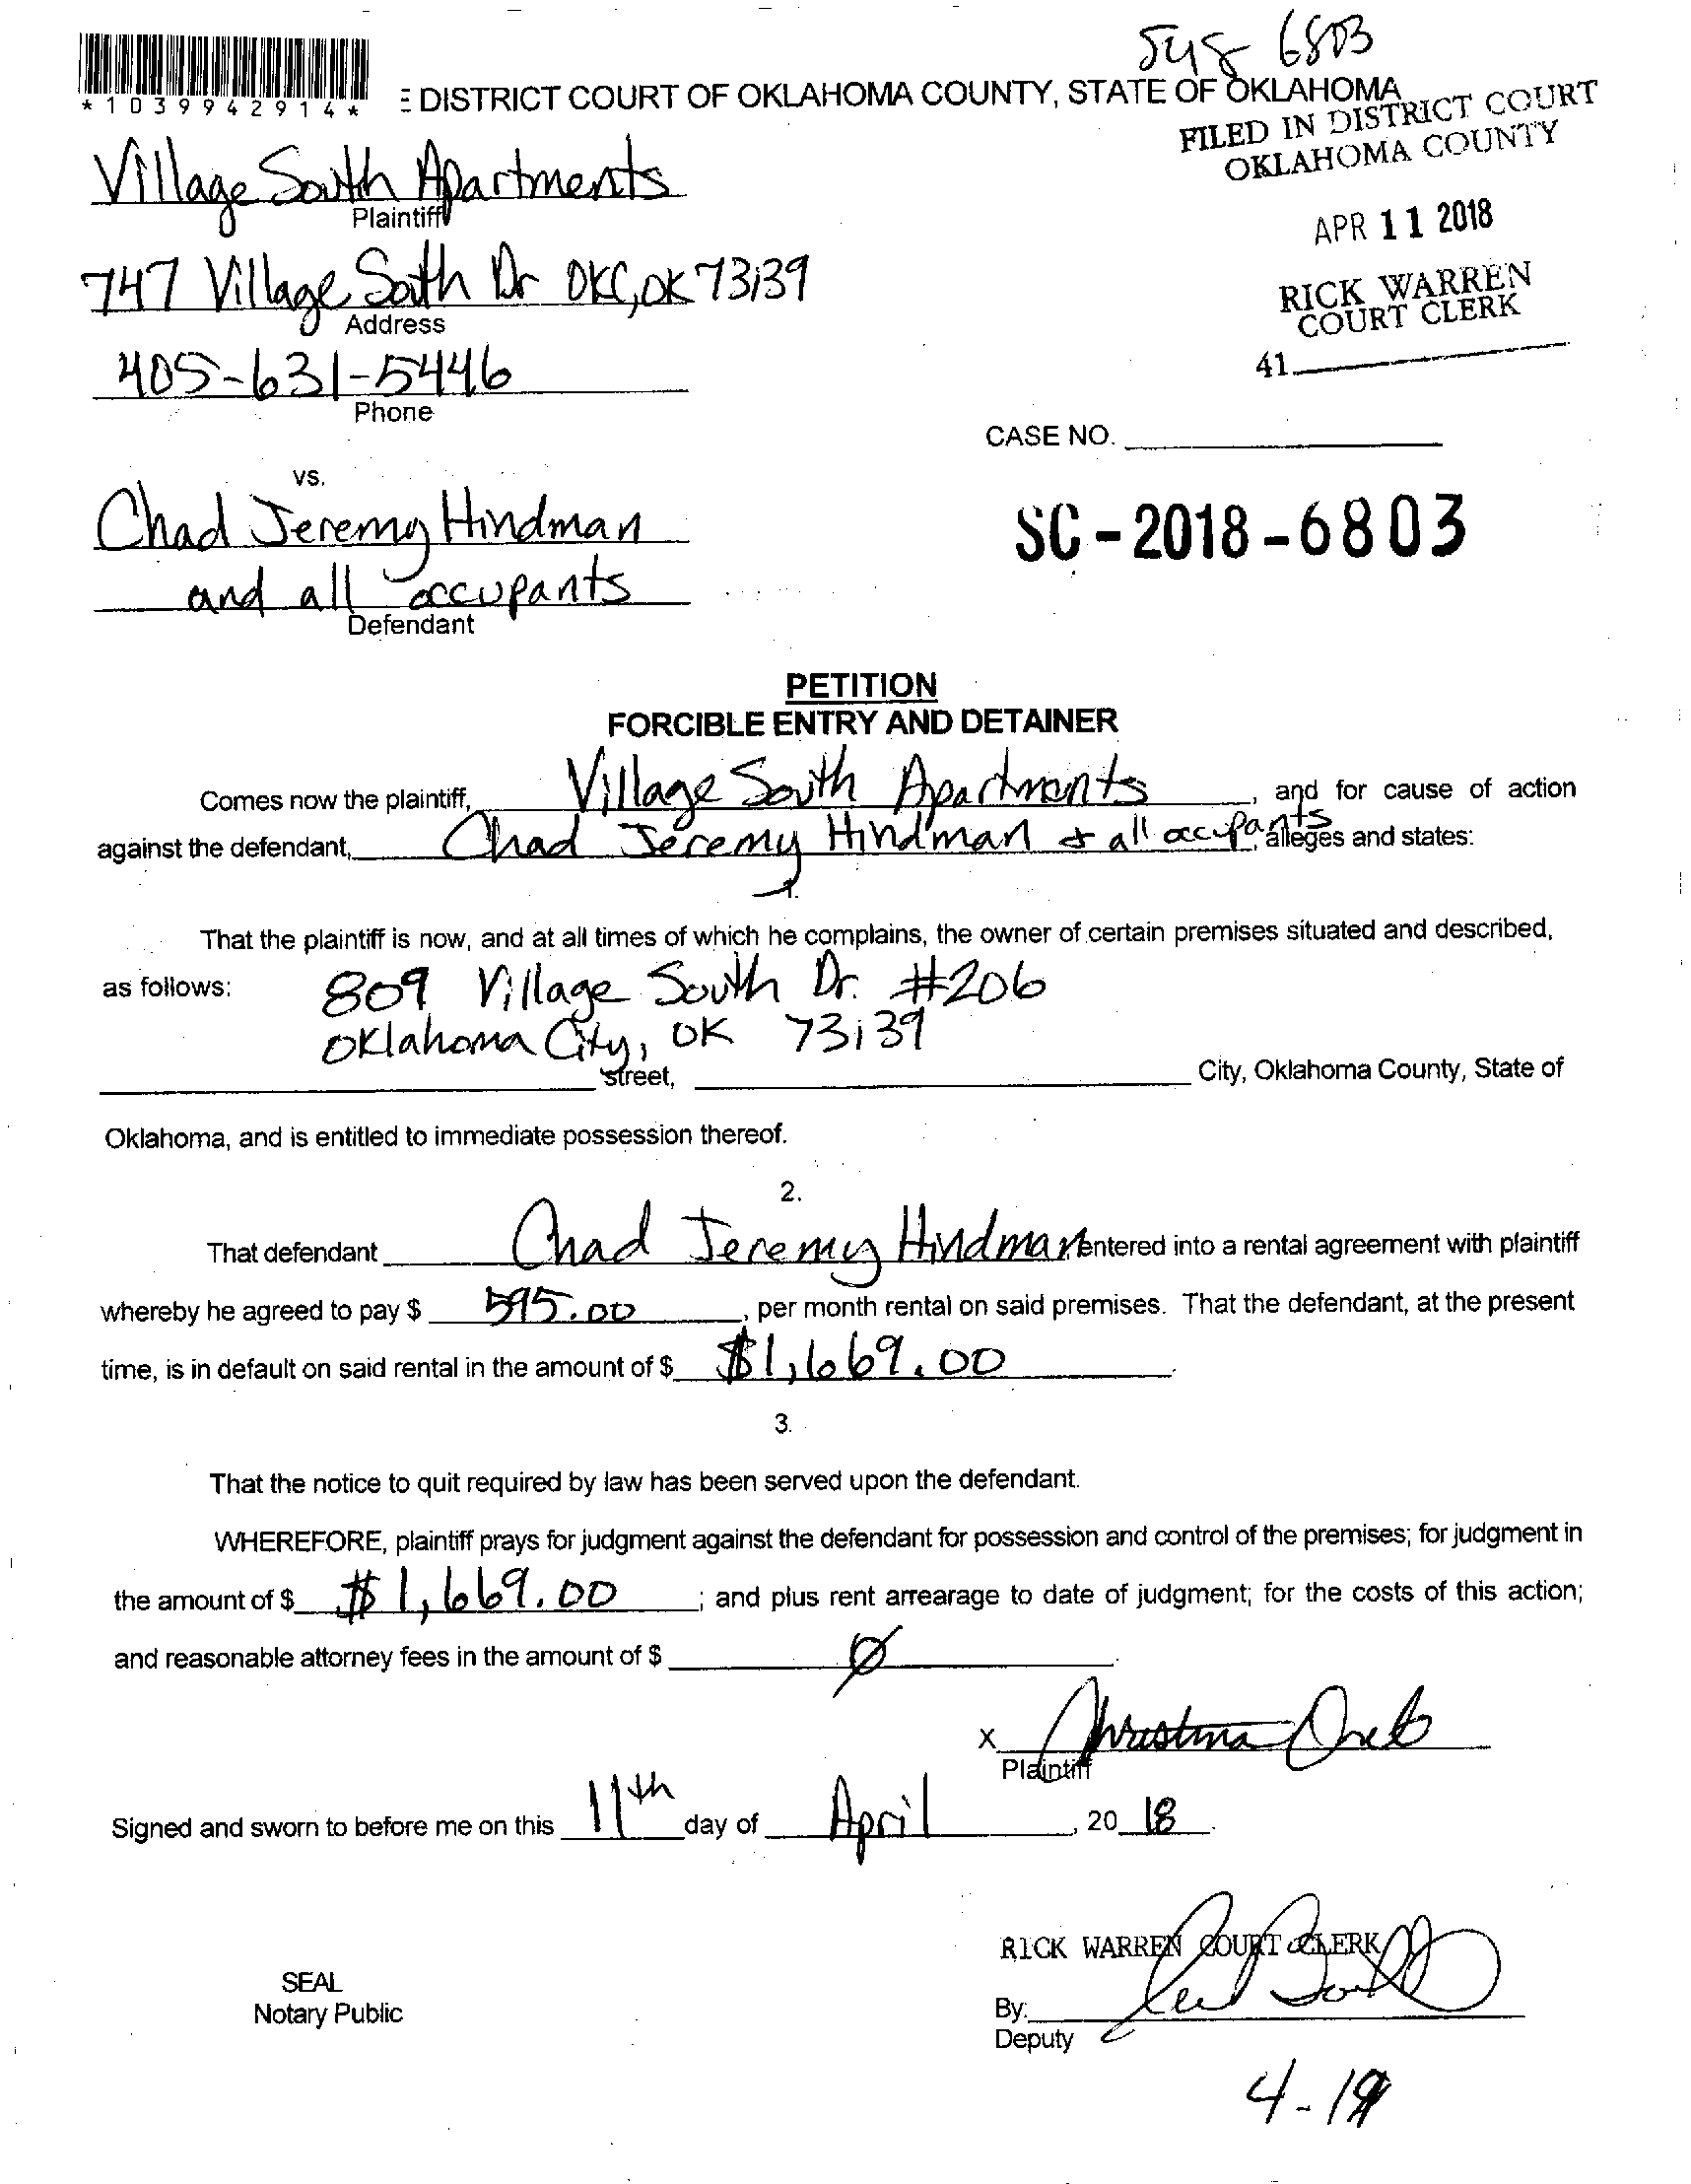 6803
*1039942914*
E DISTRICT COURT OF OKLAHOMA COUNTY, STATE OF OKLAHOMA
FILED IN DISTRICT COURT
OKLAHOMA COUNTY
Village South Apartments
Plaintiff
APR 11 2018
747 Village South Dr OKC, OK 73139
Address
RICK WARREN
COURT CLERK
405-631-5446
Phone
41
CASE NO.
vs.
Chad Jeremy Hindman
SC-2018-6803
and all occupants
Defendant
PETITION
FORCIBLE ENTRY AND DETAINER
Comes now the plaintiff, Village South Apartments, and for cause of action
against the defendant, Chad Jeremy Hindman + all occupants, alleges and states:
1.
That the plaintiff is now, and at all times of which he complains, the owner of certain premises situated and described,
as follows: 809 Village South Dr. #206
Oklahoma City, OK 73139
street, City, Oklahoma County, State of
Oklahoma, and is entitled to immediate possession thereof.
2.
That defendant Chad Jeremy Hindman entered into a rental agreement with plaintiff
whereby he agreed to pay $ 595.00, per month rental on said premises. That the defendant, at the present
time, is in default on said rental in the amount of $ $1,669.00.
3.
That the notice to quit required by law has been served upon the defendant.
WHEREFORE, plaintiff prays for judgment against the defendant for possession and control of the premises; for judgment in
the amount of $ $1,669.00; and plus rent arrearage to date of judgment; for the costs of this action;
and reasonable attorney fees in the amount of $ Ø.
X Christina
Plaintiff
Signed and sworn to before me on this 11th day of April, 20 18.
RICK WARREN COURT CLERK
SEAL
Notary Public
By:
Deputy
4-19